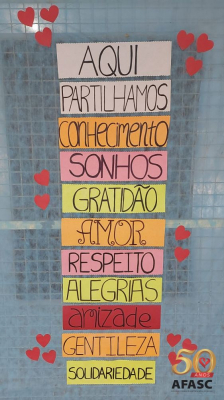 AQUI
PARTILHAMOS
CONHECIMENTO
SONHOS
GRATIDÃO
AMOR
RESPEITO
ALEGRIAS
amizade
GENTILEZA
SOLIDARIEDADE
50
ANOS
AFASC